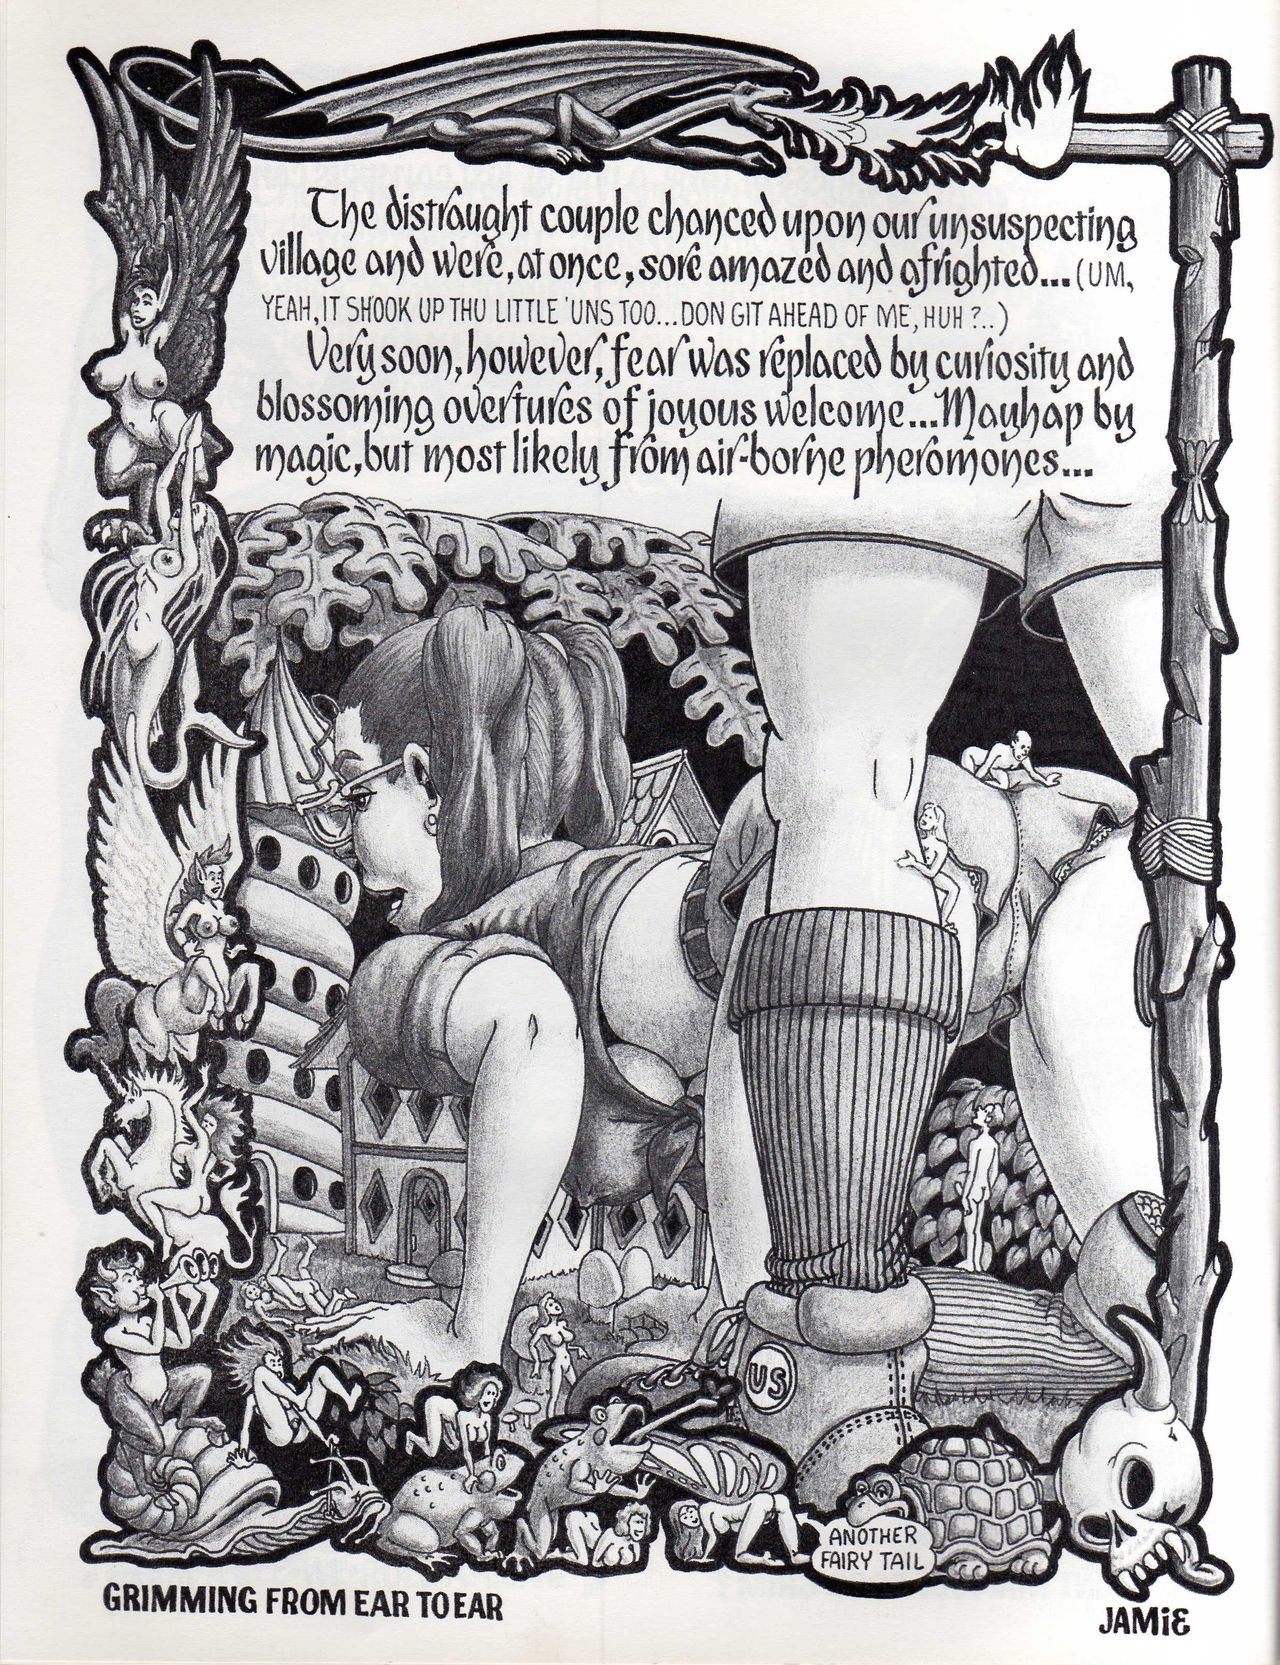 The distraught couple chanced upon our unsuspecting
village and were, at once, sore amazed and afrighted... (UM,
YEAH, IT SHOOK UP THU LITTLE 'UNS TOO...DON GIT AHEAD OF ME, HUH?..)
Very soon, however, fear was replaced by curiosity and
blossoming overtures of joyous welcome...Mayhap by
magic, but most likely from air-borne pheromones...
US
ANOTHER
FAIRY TAIL
GRIMMING FROM EAR TO EAR
JAMiE